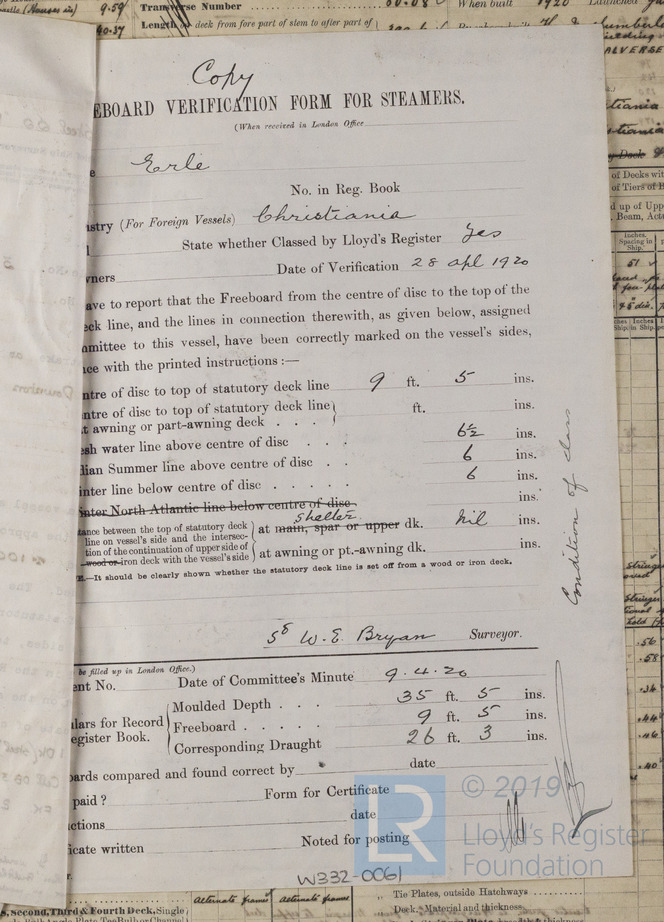 Transverse Number
When built 1920
9.59
40.37
Length on deck from fore part of stem to after part of
Copy
EBOARD VERIFICATION FORM FOR STEAMERS.
(When received in London Office
e Erle
No. in Reg. Book
istry (For Foreign Vessels) Christiania
State whether Classed by Lloyd's Register Yes
wners Date of Verification 28 apl 1920
ave to report that the Freeboard from the centre of disc to the top of the
eck line, and the lines in connection therewith, as given below, assigned
mmittee to this vessel, have been correctly marked on the vessel's sides,
nce with the printed instructions :—
ntre of disc to top of statutory deck line 9 ft. 5 ins.
ntre of disc to top of statutory deck line ft. ins.
t awning or part-awning deck . . .
esh water line above centre of disc . . . 6½ ins.
dian Summer line above centre of disc . . 6 ins.
inter line below centre of disc . . . . . 6 ins.
inter North Atlantic line below centre of disc ins.
shelter
tance between the top of statutory deck
line on vessel's side and the intersec-
tion of the continuation of upper side of
wood or iron deck with the vessel's side
at main, spar or upper dk. Nil ins.
at awning or pt.-awning dk. ins.
E.—It should be clearly shown whether the statutory deck line is set off from a wood or iron deck.
Condition of class
W. E. Bryan Surveyor.
be filled up in London Office.)
ent No. Date of Committee's Minute 9.4.20
lars for Record
egister Book.
Moulded Depth . . . 35 ft. 5 ins.
Freeboard . . . . . 9 ft. 5 ins.
Corresponding Draught 26 ft. 3 ins.
ards compared and found correct by date
paid ? Form for Certificate
ctions date
icate written Noted for posting
LR
© 2019
Lloyd's Register
Foundation
W332-0061
s, second, Third & Fourth Deck, Single
alternate frames alternate frames
Tie Plates, outside Hatchways
Deck. Material and thickness.